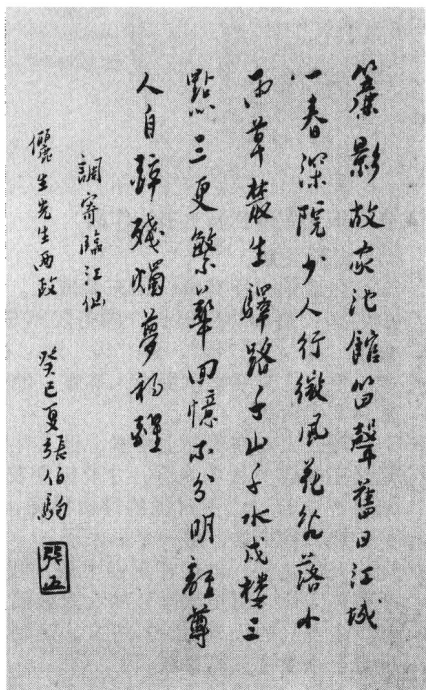 簾影故家池館笛聲舊日江城
一春深院少人行微風花亂落小
雨草叢生驛路千山千水戍楼三
點三更繁華回憶不分明離尊
人自醉殘燭夢初醒
調寄臨江仙
儷生先生兩政 癸巳夏張伯駒